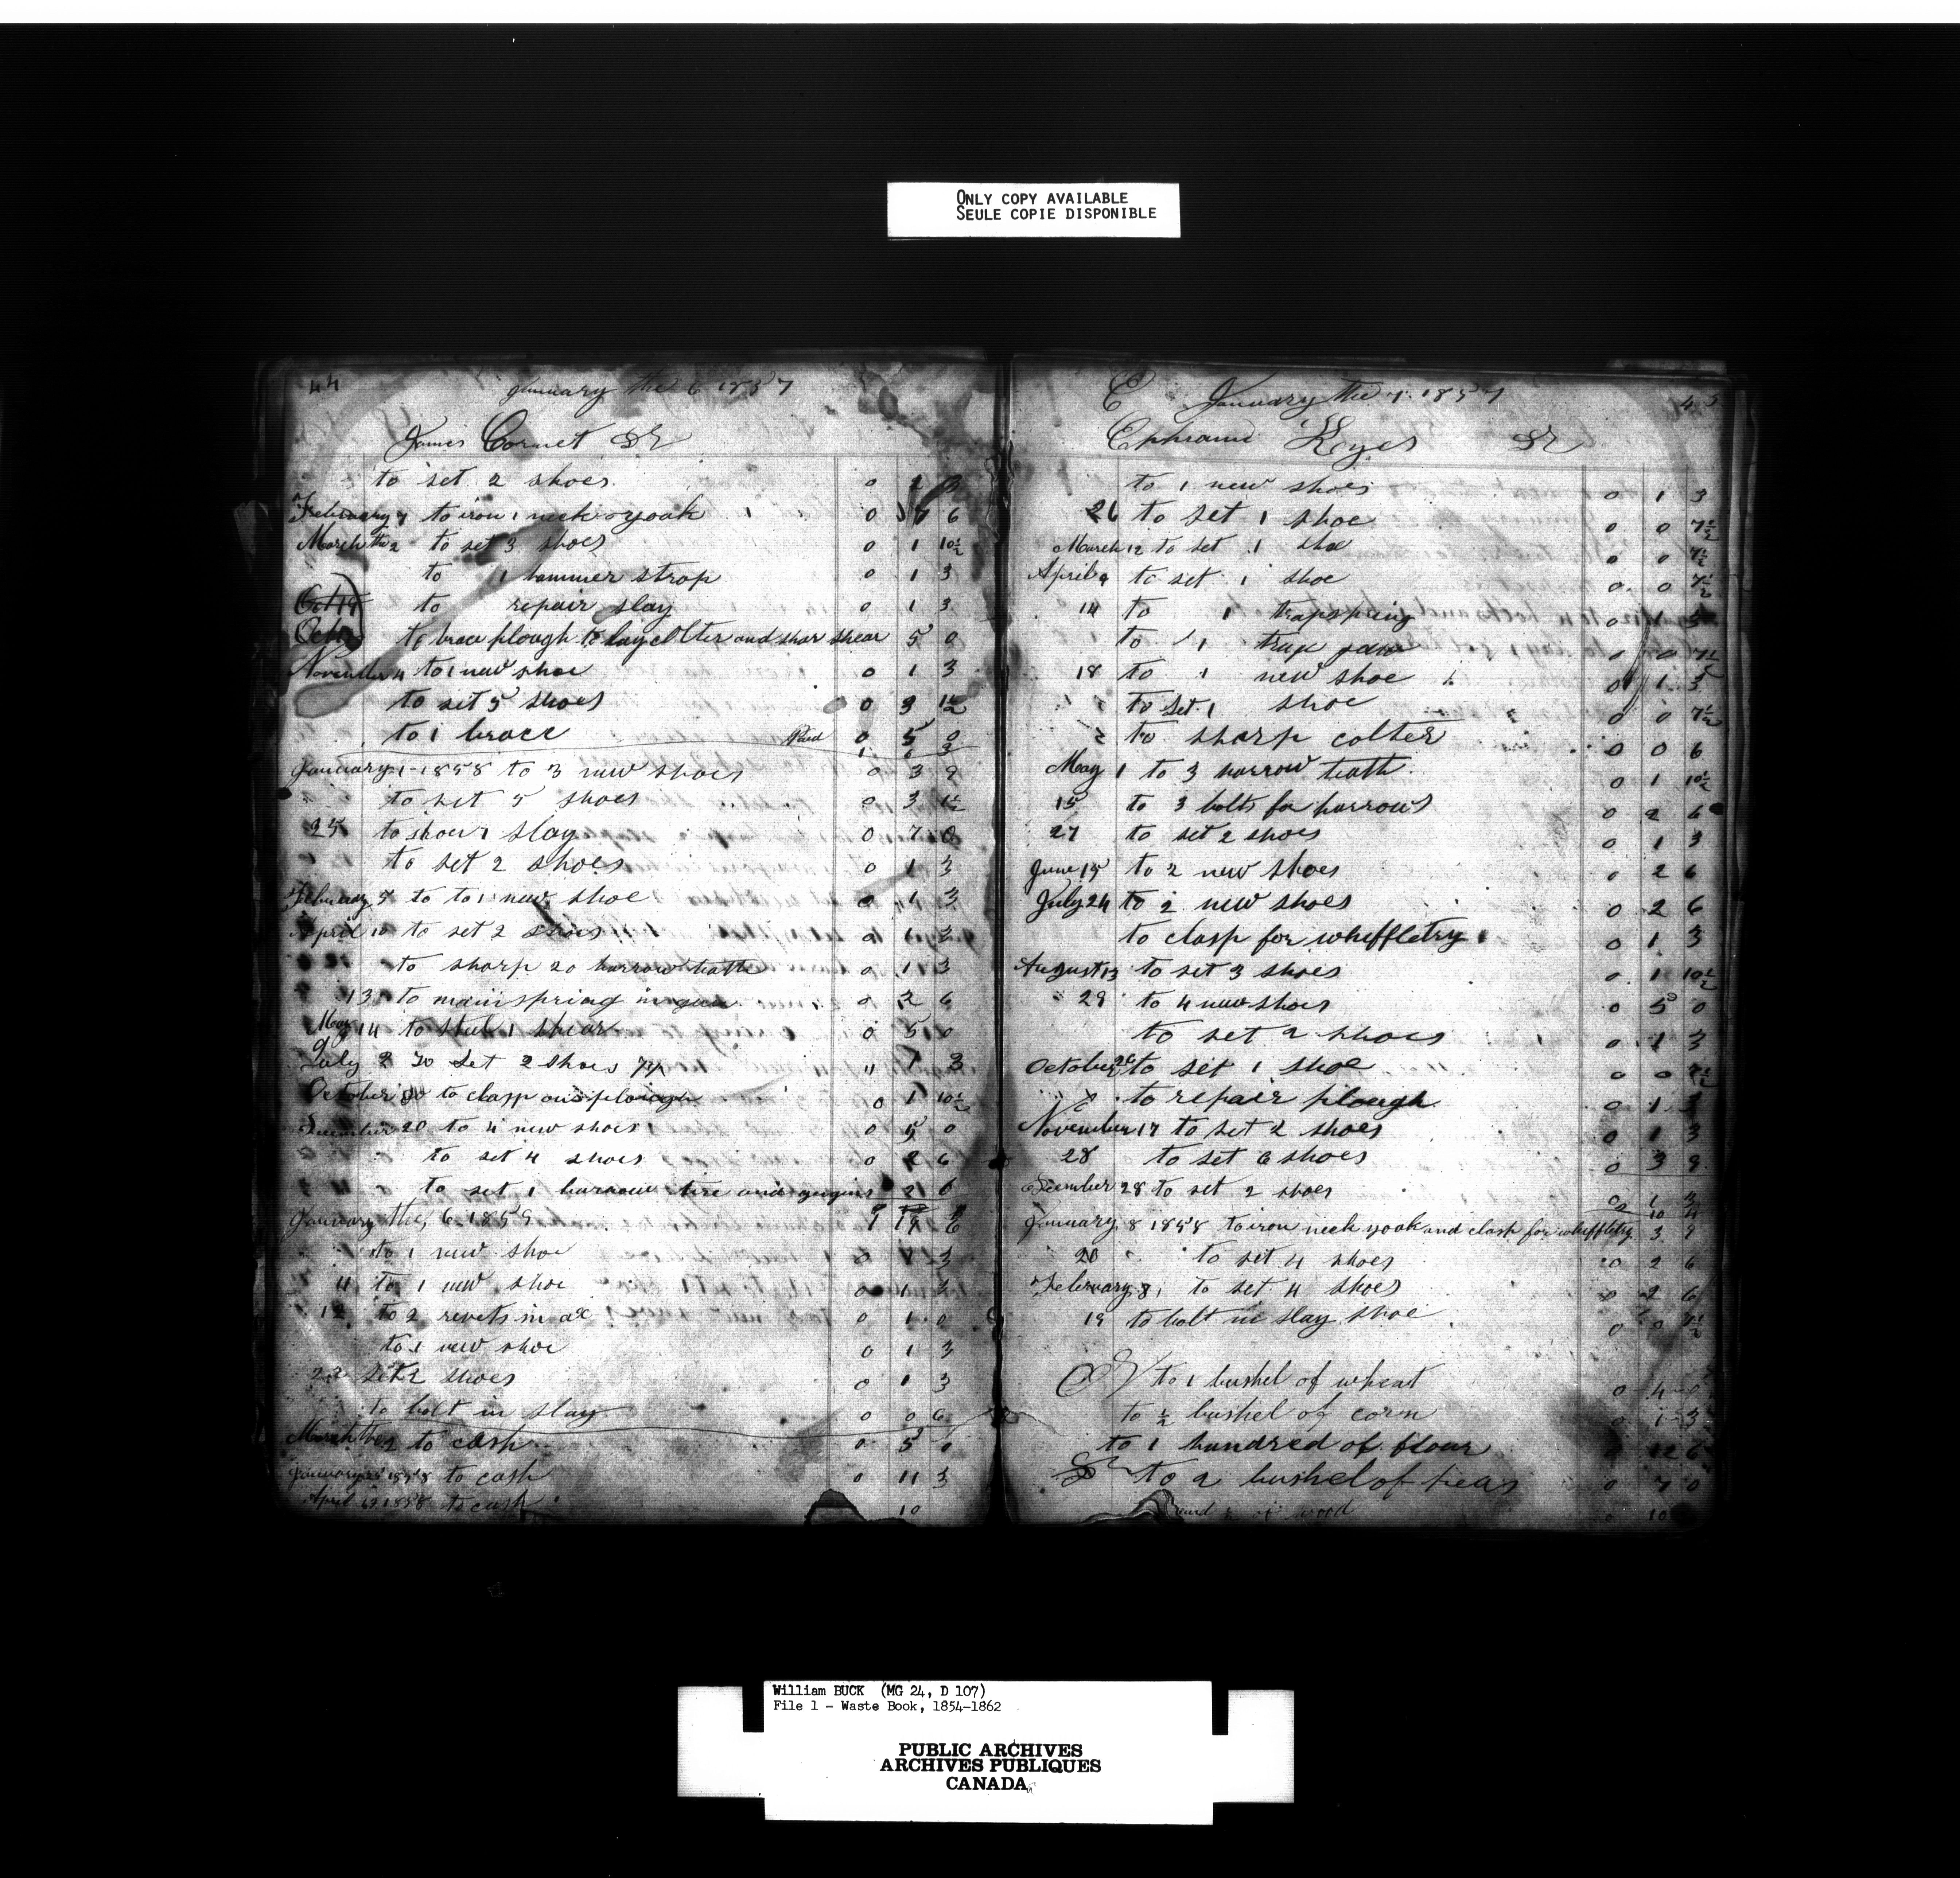 ONLY COPY AVAILABLE
SEULE COPIE DISPONIBLE
44
January the 6 1857
James Cornet Dr
to set 2 shoes 0 1 3
February 7 to iron 1 neck yoak 0 6
March the 2 to set 3 shoes 0 1 10½
to 1 hammer strap 0 1 3
Oct 14 to repair slay 0 1 3
to brace plough to lay colter and shar shear 5 0
November 4 to 1 new shoe 0 1 3
to set 5 shoes 0 3 1½
to 1 brace Paid 0 5 0
1 0
January 1 1858 to 3 new shoes 0 3 9
to set 5 shoes 0 3 1½
25 to shoue 1 slay 0 7 0
to set 2 shoes 0 1 3
February 7 to to 1 new shoe 0 1 3
April 10 to set 2 shoes 0 1 3
to sharp 20 harrow teath 0 1 3
13 to mainspring in gun 0 2 6
May 14 to steel 1 shear 0 5 0
July 2 To Set 2 shoes 7½ " 1 3
October 30 to clasp on plough 0 1 10½
December 20 to 4 new shoes 0 5 0
to set 4 shoes 0 2 6
to set 1 barrow tire and gugins 2 6
January the 6 1859 1 19 6
to 1 new shoe 0 1 3
11 to 1 new shoe 0 1 3
12 to 2 revets in ax 0 1 0
to 1 new shoe 0 1 3
23 set 2 shoes 0 1 3
to bolt in slay 0 0 6
March the 2 to cash 0 5 0
January 25 1858 to cash 0 11 3
April 1858 to cash 10
E January the 7 1857
45
Ephraim Keyes Dr
to 1 new shoes 0 1 3
26 to set 1 shoe 0 0 7½
March 12 to set 1 shoe 0 0 7½
April 9 to set 1 shoe 0 0 7½
14 to 1 trapspring 0 1 3
to 1 trap jaw 0 0 7½
18 to 1 new shoe 0 1 3
to set 1 shoe 0 0 7½
to sharp colter 0 0 6
May 1 to 3 harrow teath 0 1 10½
15 to 3 bolts for harrows 0 2 6
27 to set 2 shoes 0 1 3
June 15 to 2 new shoes 0 2 6
July 24 to 2 new shoes 0 2 6
to clasp for whiffletry 0 1 3
August 13 to set 3 shoes 0 1 10½
29 to 4 new shoes 0 5 0
to set 2 shoes 0 1 3
October 26 to set 1 shoe 0 0 7½
to repair plough 0 1 3
November 17 to set 2 shoes 0 1 3
28 to set 6 shoes 0 3 9
December 28 to set 2 shoes 0 1 3
2 10
January 8 1858 to iron neck yoak and clasp for whiffletry 3 9
20 to set 4 shoes 0 2 6
February 8 to set 4 shoes 0 2 6
19 to bolt in slay shoe 0 0 7½
Cr to 1 bushel of wheat 0 4 0
to ½ bushel of corn 0 1 3
to 1 hundred of flour 0 12 6
to 2 bushel of peas 0 7 0
of wood 0 10
William BUCK (MG 24, D 107)
File 1 - Waste Book, 1854-1862
PUBLIC ARCHIVES
ARCHIVES PUBLIQUES
CANADA